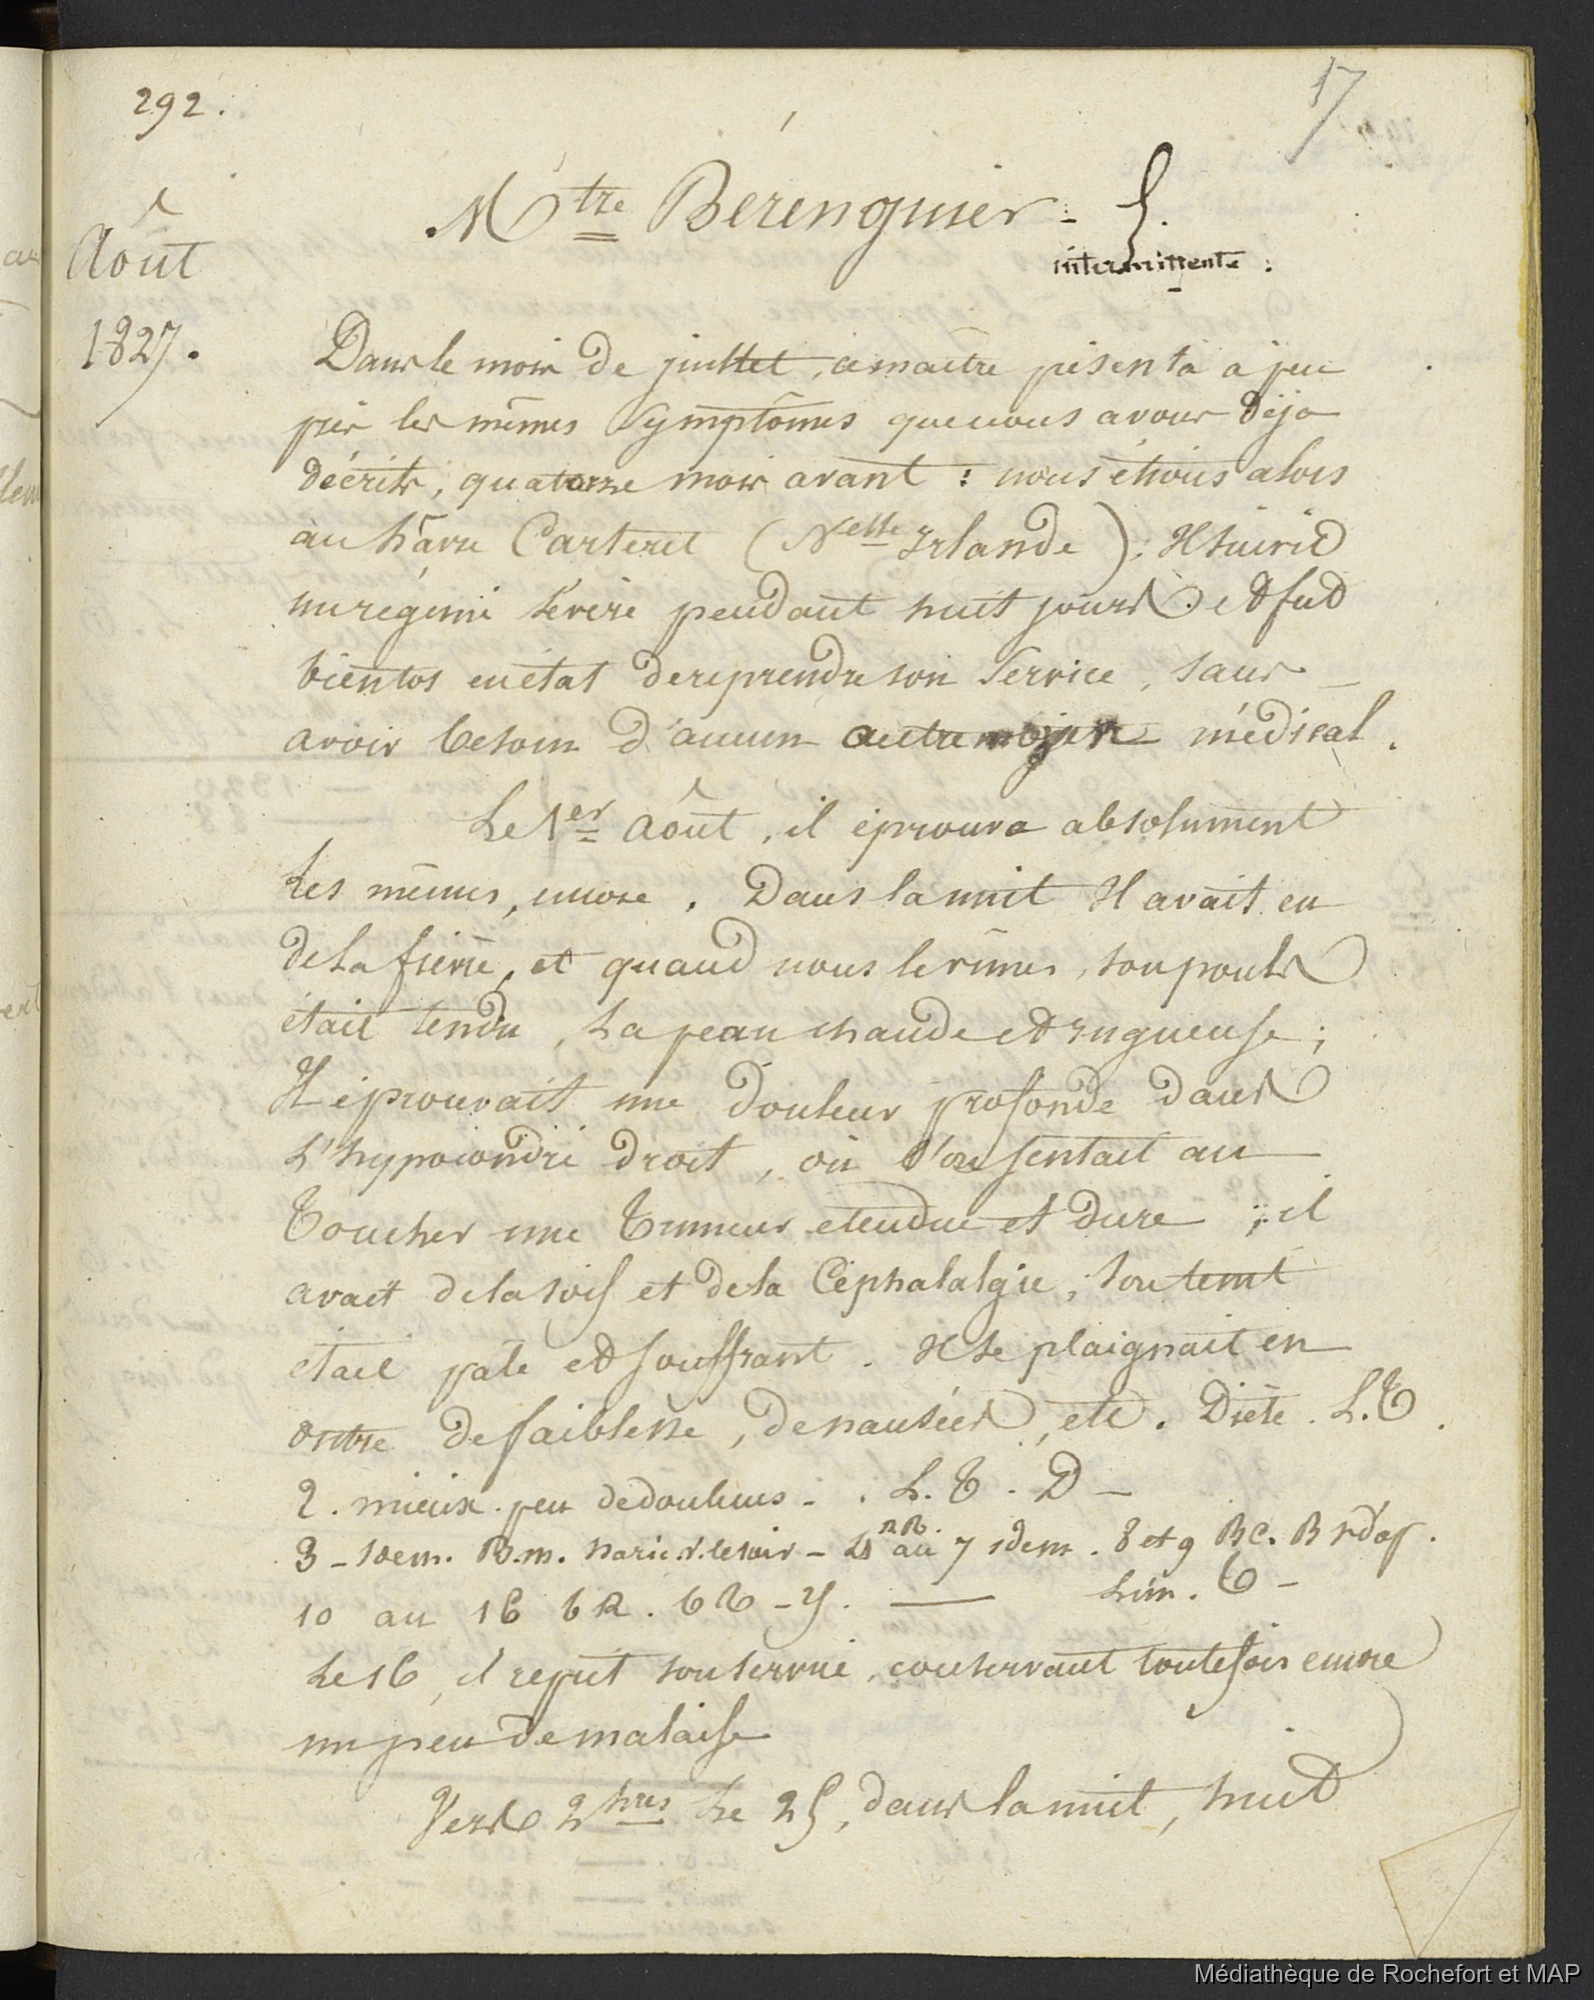 292.
17
Mtre Bérenguier - f.
intermittente :
Août
1827.
Dans le mois de juillet, ce maître présenta à peu
près les mêmes symptômes que nous avons déjà
décrits, quatorze mois avant : nous étions alors
au hâvre Carteret (Nelle Irlande) : Il suivit
un régime sévère pendant huit jours et fut
bientôt en état de reprendre son service, sans
avoir besoin d'aucun autre moyen médical.
Le 1er Août, il éprouva absolument
les mêmes, encore. Dans la nuit Il avait eu
de la fièvre, et quand nous le vîmes, son pouls
était tendu, la peau chaude et rugueuse ;
Il éprouvait une douleur profonde dans
l'hypocondre droit, où l'on sentait au
toucher une tumeur étendue et dure ; il
avait de la soif et de la céphalalgie, son teint
était pâle et souffrant. Il se plaignait en
outre de faiblesse, de nausées, etc. Diète. L.T.
2. mieux. peu de douleurs - . L. T. D -
3 - idem. B.m. le soir - 4 au 7 idem. 8 et 9 BC.
10 au 16 - Lim. T -
Le 16, il reprit son service, conservant toutefois encore
un peu de malaise
Vers 2 hres le 25, dans la nuit, huit
Médiathèque de Rochefort et MAP